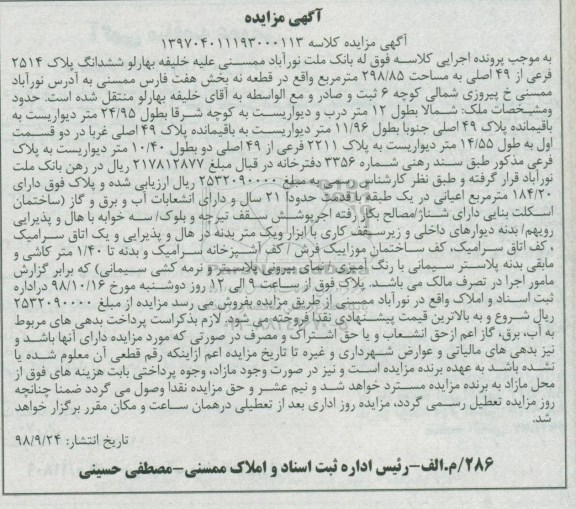 آگهی مزایده
آگهی مزایده کلاسه ۱۳۹۷۰۴۰۱۱۱۹۳۰۰۰۱۱۳
به موجب پرونده اجرایی کلاسه فوق له بانک ملت نورآباد ممسنی علیه خلیفه بهارلو ششدانگ پلاک ۲۵۱۴
فرعی از ۴۹ اصلی به مساحت ۲۹۸/۸۵ مترمربع واقع در قطعه نه بخش هفت فارس ممسنی به آدرس نورآباد
ممسنی خ پیروزی شمالی کوچه ۶ ثبت و صادر و مع الواسطه به آقای خلیفه بهارلو منتقل شده است. حدود
ومشخصات ملک: شمالا بطول ۱۲ متر درب و دیواریست به کوچه شرقا بطول ۲۴/۹۵ متر دیواریست به
باقیمانده پلاک ۴۹ اصلی جنوبا بطول ۱۱/۹۶ متر دیواریست به باقیمانده پلاک ۴۹ اصلی غربا در دو قسمت
اول به طول ۱۴/۵۵ متر دیواریست به پلاک ۲۲۱۱ فرعی از ۴۹ اصلی دو بطول ۱۰/۴۰ متر دیواریست به پلاک
فرعی مذکور طبق سند رهنی شماره ۳۳۵۶ دفترخانه در قبال مبلغ ۲۱۷۸۱۲۸۷۷ ریال در رهن بانک ملت
نورآباد قرار گرفته و طبق نظر کارشناس رسمی به مبلغ ۲۵۳۲۰۹۰۰۰۰ ریال ارزیابی شده و پلاک فوق دارای
۱۸۴/۲۰ مترمربع اعیانی در یک طبقه با قدمت حدودا ۲۱ سال و دارای انشعابات آب و برق و گاز (ساختمان
اسکلت بنایی دارای شناژ/مصالح بکار رفته اجرپوشش سقف تیرچه و بلوک/ سه خوابه با هال و پذیرایی
رویهم/ بدنه دیوارهای داخلی و زیرسقف کاری با ابزار ویک متر بدنه در هال و پذیرایی و یک اتاق سرامیک
، کف اتاق سرامیک، کف ساختمان موزاییک فرش / کف آشپزخانه سرامیک و بدنه تا ۱/۴۰ متر کاشی و
مابقی بدنه پلاستر سیمانی با رنگ آمیزی /نمای بیرونی پلاستر و نرمه کشی سیمانی) که برابر گزارش
مامور اجرا در تصرف مالک می باشد. پلاک فوق از ساعت ۹ الی ۱۲ روز دوشنبه مورخ ۹۸/۱۰/۱۶ دراداره
ثبت اسناد و املاک واقع در نورآباد ممسنی از طریق مزایده بفروش می رسد مزایده از مبلغ ۲۵۳۲۰۹۰۰۰۰
ریال شروع و به بالاترین قیمت پیشنهادی نقدا فروخته می شود. لازم بذکراست پرداخت بدهی های مربوط
به آب، برق، گاز اعم ازحق انشعاب و یا حق اشتراک و مصرف در صورتی که مورد مزایده دارای آنها باشد و
نیز بدهی های مالیاتی و عوارض شهرداری و غیره تا تاریخ مزایده اعم ازاینکه رقم قطعی آن معلوم شده یا
نشده باشد به عهده برنده مزایده است و نیز در صورت وجود مازاد، وجوه پرداختی بابت هزینه های فوق از
محل مازاد به برنده مزایده مسترد خواهد شد و نیم عشر و حق مزایده نقدا وصول می گردد ضمنا چنانچه
روز مزایده تعطیل رسمی گردد، مزایده روز اداری بعد از تعطیلی درهمان ساعت و مکان مقرر برگزار خواهد
شد.
تاریخ انتشار: ۹۸/۹/۲۴
۲۸۶/م.الف-رئیس اداره ثبت اسناد و املاک ممسنی-مصطفی حسینی